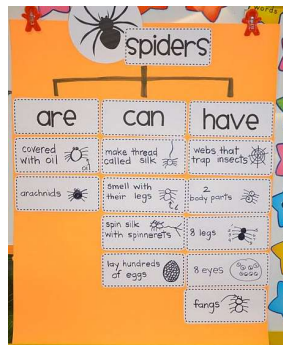 words
spiders
are
can
have
covered
with oil
oil
arachnids
make thread
called silk
smell with
their legs
spin silk
with spinnerets
lay hundreds
of eggs
webs that
trap insects
2
body parts
8 legs
8 eyes
fangs